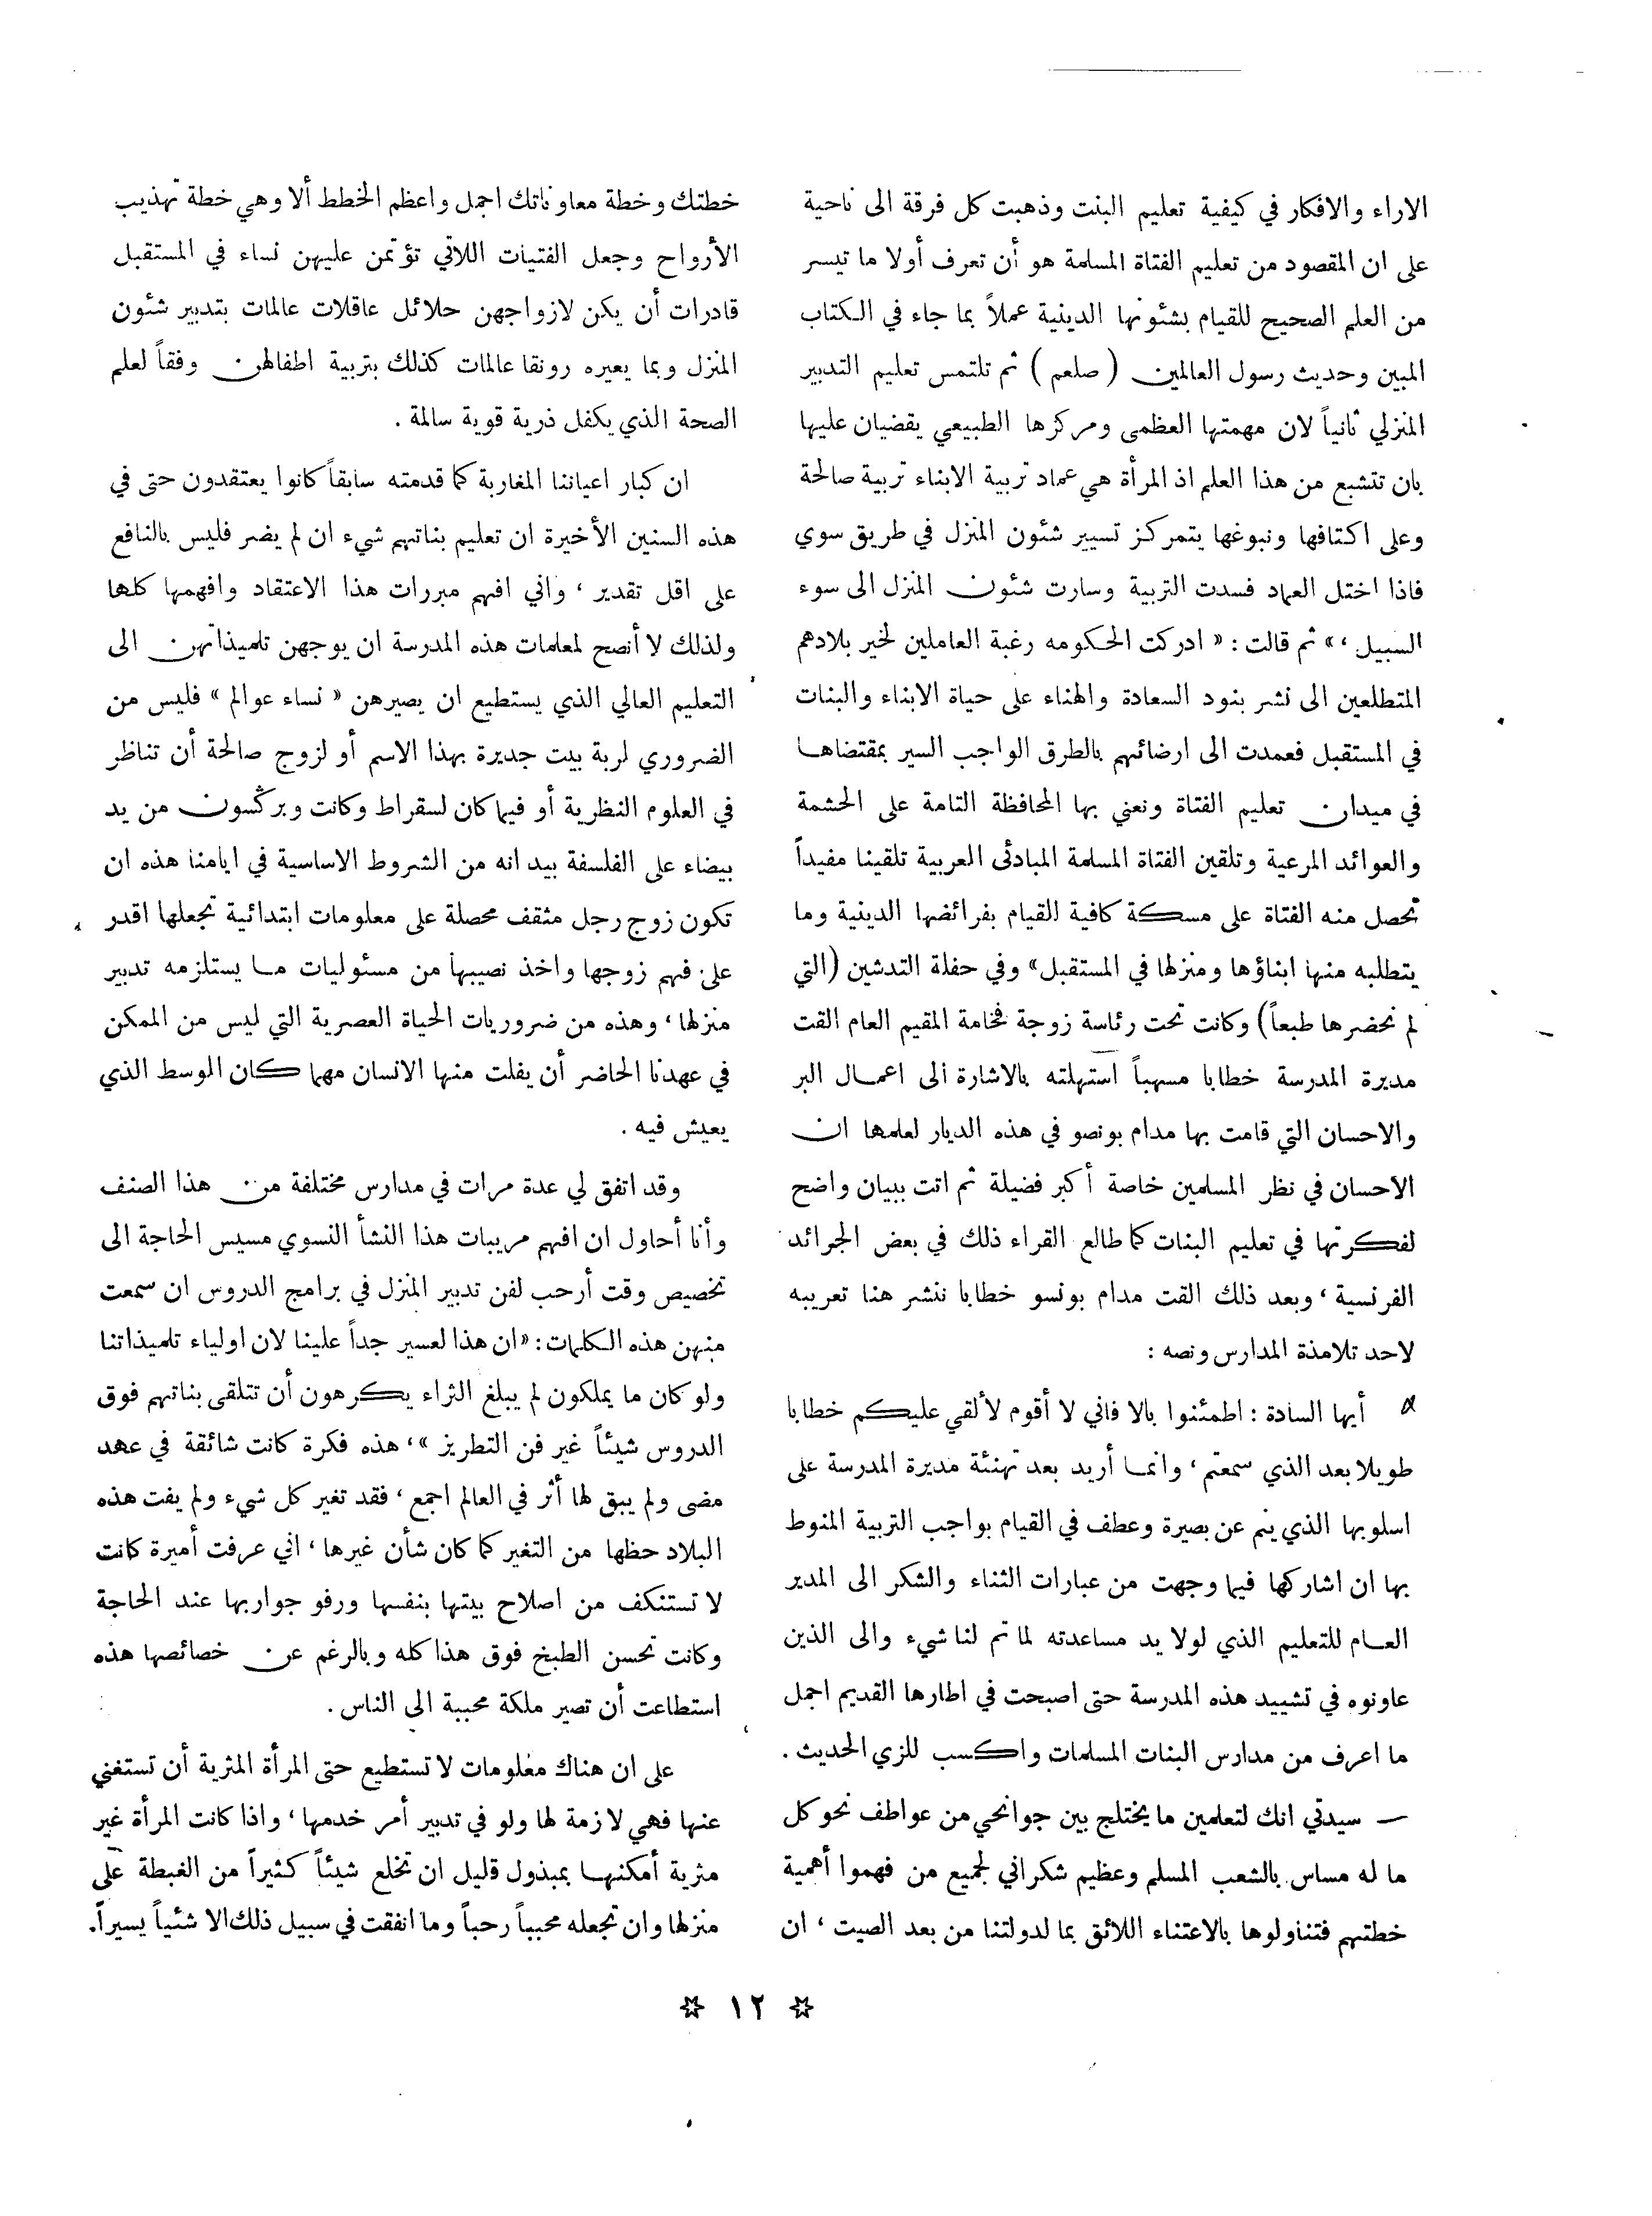 الاراء والافكار في كيفية تعليم البنت وذهبت كل فرقة الى ناحية
على ان المقصود من تعليم الفتاة المسلمة هو أن تعرف أولا ما تيسر
من العلم الصحيح للقيام بشئونها الدينية عملاً بما جاء في الكتاب
المبين وحديث رسول العالمين ( صلعم ) ثم تلتمس تعليم التدبير
المنزلي ثانياً لان مهمتها العظمى ومركزها الطبيعي يقضيان عليها
بان تتشبع من هذا العلم اذ المرأة هي عماد تربية الابناء تربية صالحة
وعلى اكتافها ونبوغها يتمركز تسيير شئون المنزل في طريق سوي
فاذا اختل العماد فسدت التربية وسارت شئون المنزل الى سوء
السبيل ،» ثم قالت : « ادركت الحكومه رغبة العاملين لخير بلادهم
المتطلعين الى نشر بنود السعادة والهناء على حياة الابناء والبنات
في المستقبل فعمدت الى ارضائهم بالطرق الواجب السير بمقتضاها
في ميدان تعليم الفتاة ونعني بها المحافظة التامة على الحشمة
والعوائد المرعية وتلقين الفتاة المسلمة المبادئى العربية تلقينا مفيداً
تحصل منه الفتاة على مسكة كافية للقيام بفرائضها الدينية وما
يتطلبه منها ابناؤها ومنزلها في المستقبل» وفي حفلة التدشين (التي
لم نحضرها طبعاً) وكانت تحت رئاسة زوجة فخامة المقيم العام القت
مديرة المدرسة خطابا مسهباً استهلته بالاشارة الى اعمال البر
والاحسان التي قامت بها مدام بونصو في هذه الديار لعلمها ان
الاحسان في نظر المسلمين خاصة أكبر فضيلة ثم اتت ببيان واضح
لفكرتها في تعليم البنات كما طالع القراء ذلك في بعض الجرائد
الفرنسية ، وبعد ذلك القت مدام بونسو خطابا ننشر هنا تعريبه
لاحد تلامذة المدارس ونصه :
« أيها السادة : اطمئنوا بالا فاني لا أقوم لألقي عليكم خطابا
طويلا بعد الذي سمعتم ، وانما أريد بعد تهنئة مديرة المدرسة على
اسلوبها الذي ينم عن بصيرة وعطف في القيام بواجب التربية المنوط
بها ان اشاركها فيما وجهت من عبارات الثناء والشكر الى المدير
العام للتعليم الذي لولا يد مساعدته لما تم لنا شيء والى الذين
عاونوه في تشييد هذه المدرسة حتى اصبحت في اطارها القديم اجمل
ما اعرف من مدارس البنات المسلمات واكسب للزي الحديث .
— سيدتي انك لتعلمين ما يختلج بين جوانحي من عواطف نحو كل
ما له مساس بالشعب المسلم وعظيم شكراني لجميع من فهموا أهمية
خطتهم فتناولوها بالاعتناء اللائق بما لدولتنا من بعد الصيت ، ان
خطتك وخطة معاوناتك اجمل واعظم الخطط ألا وهي خطة تهذيب
الأرواح وجعل الفتيات اللاتي تؤتمن عليهن نساء في المستقبل
قادرات أن يكن لازواجهن حلائل عاقلات عالمات بتدبير شئون
المنزل وبما يعيره رونقا عالمات كذلك بتربية اطفالهن وفقاً لعلم
الصحة الذي يكفل ذرية قوية سالمة .
ان كبار اعياننا المغاربة كما قدمته سابقاً كانوا يعتقدون حتى في
هذه السنين الأخيرة ان تعليم بناتهم شيء ان لم يضر فليس بالنافع
على اقل تقدير ، واني افهم مبررات هذا الاعتقاد وافهمها كلها
ولذلك لا أنصح لمعلمات هذه المدرسة ان يوجهن تلميذاتهن الى
التعليم العالي الذي يستطيع ان يصيرهن « نساء عوالم » فليس من
الضروري لربة بيت جديرة بهذا الاسم أو لزوج صالحة أن تناظر
في العلوم النظرية أو فيما كان لسقراط وكانت وبرڭسون من يد
بيضاء على الفلسفة بيد انه من الشروط الاساسية في ايامنا هذه ان
تكون زوج رجل مثقف محصلة على معلومات ابتدائية تجعلها اقدر
على فهم زوجها واخذ نصيبها من مسئوليات ما يستلزمه تدبير
منزلها ، وهذه من ضروريات الحياة العصرية التي ليس من الممكن
في عهدنا الحاضر أن يفلت منها الانسان مهما كان الوسط الذي
يعيش فيه .
وقد اتفق لي عدة مرات في مدارس مختلفة من هذا الصنف
وأنا أحاول ان افهم مربيات هذا النشأ النسوي مسيس الحاجة الى
تخصيص وقت أرحب لفن تدبير المنزل في برامج الدروس ان سمعت
منهن هذه الكلمات : «ان هذا لعسير جداً علينا لان اولياء تلميذاتنا
ولو كان ما يملكون لم يبلغ الثراء يكرهون أن تتلقى بناتهم فوق
الدروس شيئاً غير فن التطريز »، هذه فكرة كانت شائقة في عهد
مضى ولم يبق لها أثر في العالم اجمع ، فقد تغير كل شيء ولم يفت هذه
البلاد حظها من التغير كما كان شأن غيرها ، اني عرفت أميرة كانت
لا تستنكف من اصلاح بيتها بنفسها ورفو جواربها عند الحاجة
وكانت تحسن الطبخ فوق هذا كله وبالرغم عن خصائصها هذه
استطاعت أن تصير ملكة محببة الى الناس .
على ان هناك معلومات لا تستطيع حتى المرأة المثرية أن تستغني
عنها فهي لازمة لها ولو في تدبير أمر خدمها ، واذا كانت المرأة غير
مثرية أمكنها بمبذول قليل ان تخلع شيئاً كثيراً من الغبطة على
منزلها وان تجعله محبباً رحباً وما انفقت في سبيل ذلك الا شئياً يسيراً.
۞ ١٢ ۞